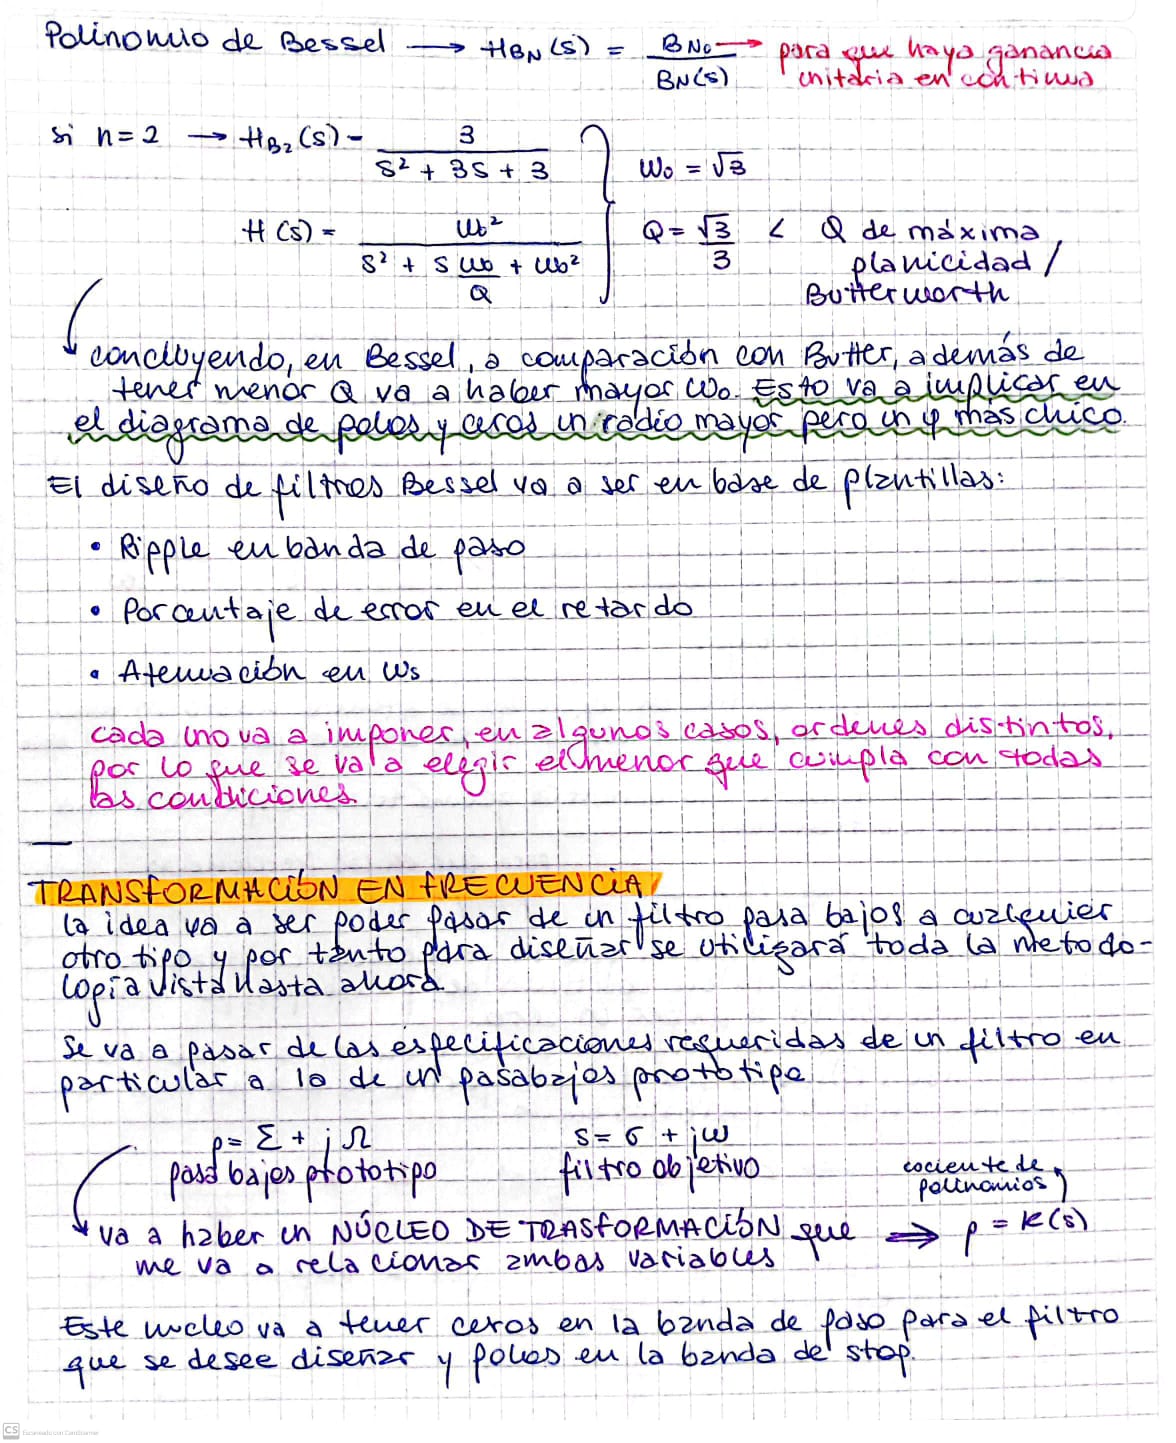 Polinomio de Bessel → H_BN(s) = B_N0 / B_N(s) → para que haya ganancia unitaria en continua
si n=2 → H_B2(s) - 3 / (s² + 3s + 3)
ω₀ = √3
H(s) = ω₀² / (s² + s ω₀/Q + ω₀²)
Q = √3/3 < Q de máxima planicidad / Butterworth
concluyendo, en Bessel, a comparación con Butter, además de
tener menor Q va a haber mayor ω₀. Esto va a implicar en
el diagrama de polos y ceros un radio mayor pero un φ más chico.
El diseño de filtros Bessel va a ser en base de plantillas:
• Ripple en banda de paso
• Porcentaje de error en el retardo
• Atenuación en ωs
cada uno va a imponer, en algunos casos, ordenes distintos,
por lo que se va a elegir el menor que cumpla con todas
las condiciones.
TRANSFORMACIÓN EN FRECUENCIA
la idea va a ser poder pasar de un filtro pasa bajos a cualquier
otro tipo y por tanto para diseñar se utilizará toda la metodo-
logía vista hasta ahora.
Se va a pasar de las especificaciones requeridas de un filtro en
particular a lo de un pasabajos prototipo
p = Σ + jΩ
pasa bajos prototipo
s = σ + jω
filtro objetivo
cociente de
polinomios
va a haber un NÚCLEO DE TRASFORMACIÓN que ⇒ p = K(s)
me va a relacionar ambas variables
Este nucleo va a tener ceros en la banda de paso para el filtro
que se desee diseñar y polos en la banda de stop.
CS Escaneado con CamScanner